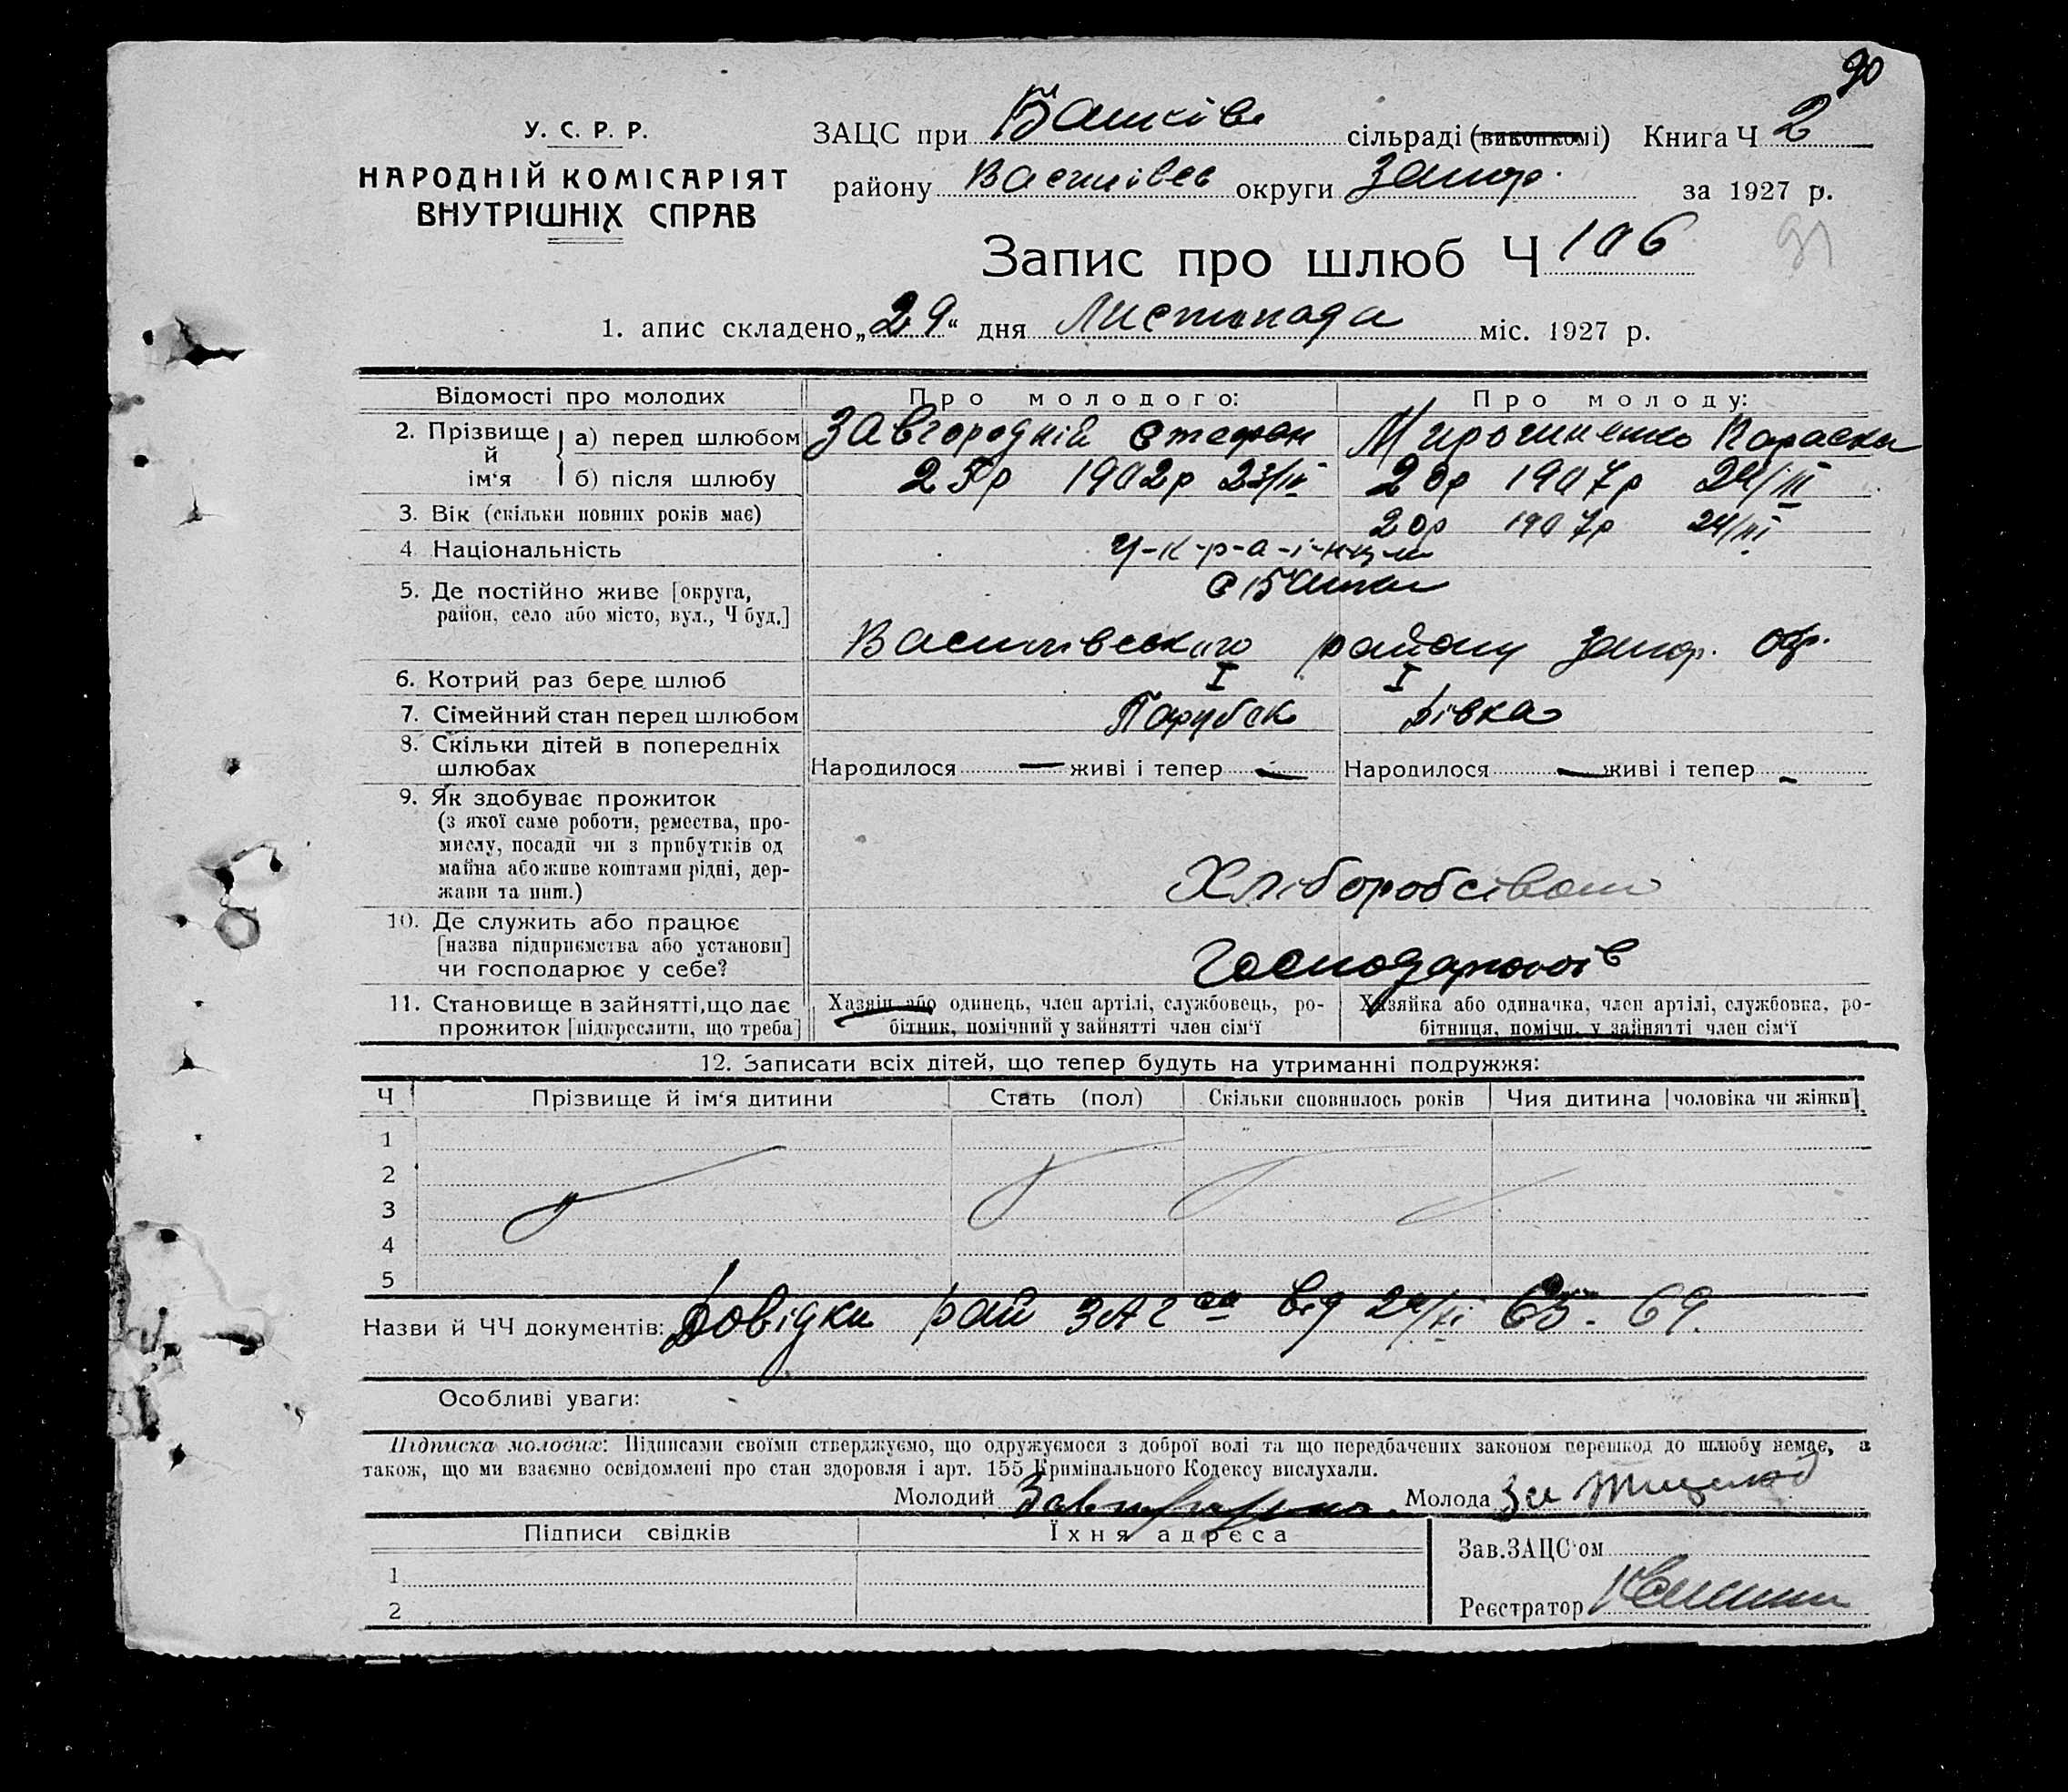 90
У. С. Р. Р.
НАРОДНІЙ КОМІСАРІЯТ
ВНУТРІШНІХ СПРАВ
ЗАЦС при сільраді (виконкомі) Книга Ч 2
району Василівсь округи Запор. за 1927 р.
Запис про шлюб Ч 106
91
1. апис складено „29“ дня Листопада міс. 1927 р.
Відомості про молодих Про молодого: Про молоду:
2. Прізвище й ім‘я а) перед шлюбом Завгородній Стефан Мирошниченко Параска
б) після шлюбу 25р 1902р 20р 1907р 24/III
3. Вік (скільки повних років має) 20р 1907р 24/III
4 Національність у-к-р-а-ї-н-ц-і
5. Де постійно живе [округа,
район, село або місто, вул., Ч буд.]
Василівського району Запор. окр.
6. Котрий раз бере шлюб I I
7. Сімейний стан перед шлюбом Парубок Дівка
8. Скільки дітей в попередніх
шлюбах Народилося — живі і тепер — Народилося — живі і тепер -
9. Як здобуває прожиток
(з якої саме роботи, ремества, про-
мислу, посади чи з прибутків од
майна або живе коштами рідні, дер-
жави та инш.) Хліборобсівом
10. Де служить або працює
[назва підприємства або установи]
чи господарює у себе? Господарюють
11. Становище в зайнятті, що дає Хазяїн або одинець, член артілі, службовець, ро- Хазяйка або одиначка, член артілі, службовка, ро-
прожиток [підкреслити, що треба] бітник, помічний у зайнятті член сім‘ї бітниця, помічн. у зайнятті член сім‘ї
12. Записати всіх дітей, що тепер будуть на утриманні подружжя:
Ч Прізвище й ім‘я дитини Стать (пол) Скільки сповнилось років Чия дитина [чоловіка чи жінки]
1
2
3
4
5
Назви й ЧЧ документів: Довідки рай ЗАГса від 69.
Особливі уваги: -
Підписка молодих: Підписами своїми стверджуємо, що одружуємося з доброї волі та що передбачених законом перешкод до шлюбу немає, а
також, що ми взаємно освідомлені про стан здоровля і арт. 155 Кримінального Кодексу вислухали.
Молодий Молода За
Підписи свідків Їхня адреса
Зав.ЗАЦС‘ом
1
2
Реєстратор